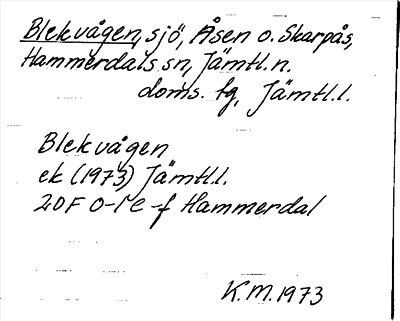 Blekvågen, sjö, Åsen o. Skarpås,
Hammerdals sn, Jämtl. n.
doms. tg, Jämtl. l.
Blekvågen
ek (1973) Jämtl. l.
20F 0-1 e-f Hammerdal
K.M. 1973